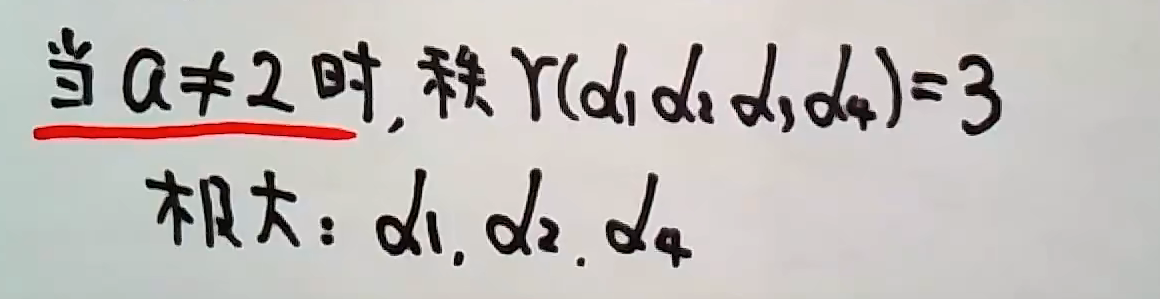 当a≠2时,秩r(α₁α₂α₃α₄)=3
极大:α₁.α₂.α₄